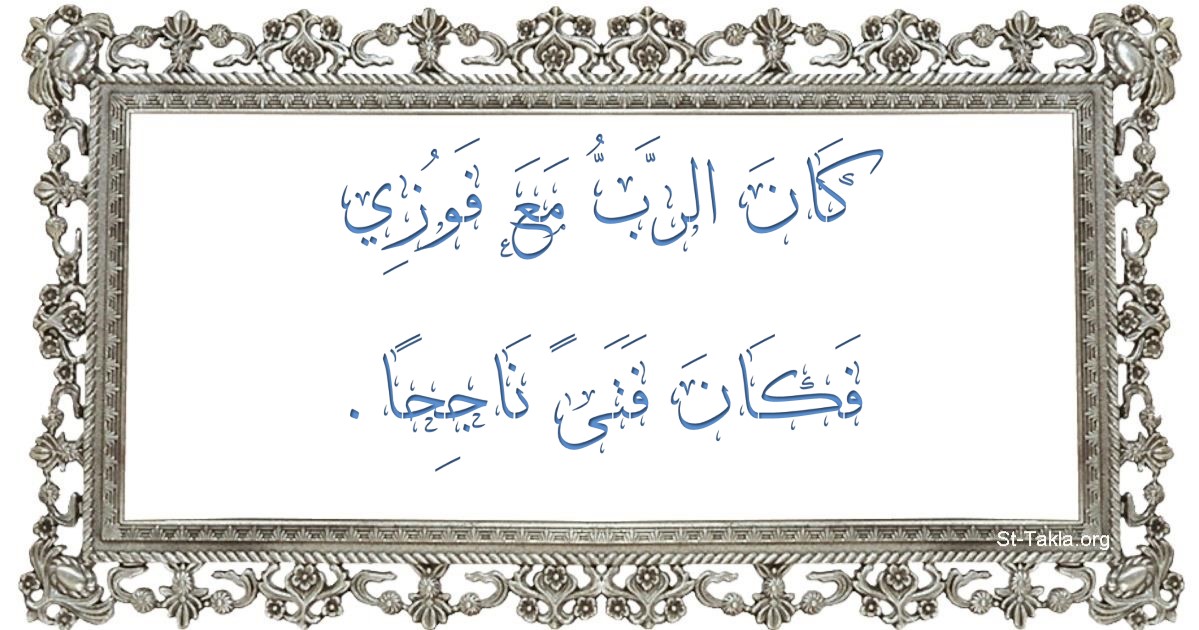 كَانَ الرَّبُّ مَعَ فَوُزِي
فَكَانَ فَتَىً نَاجِحًا .
St-Takla.org